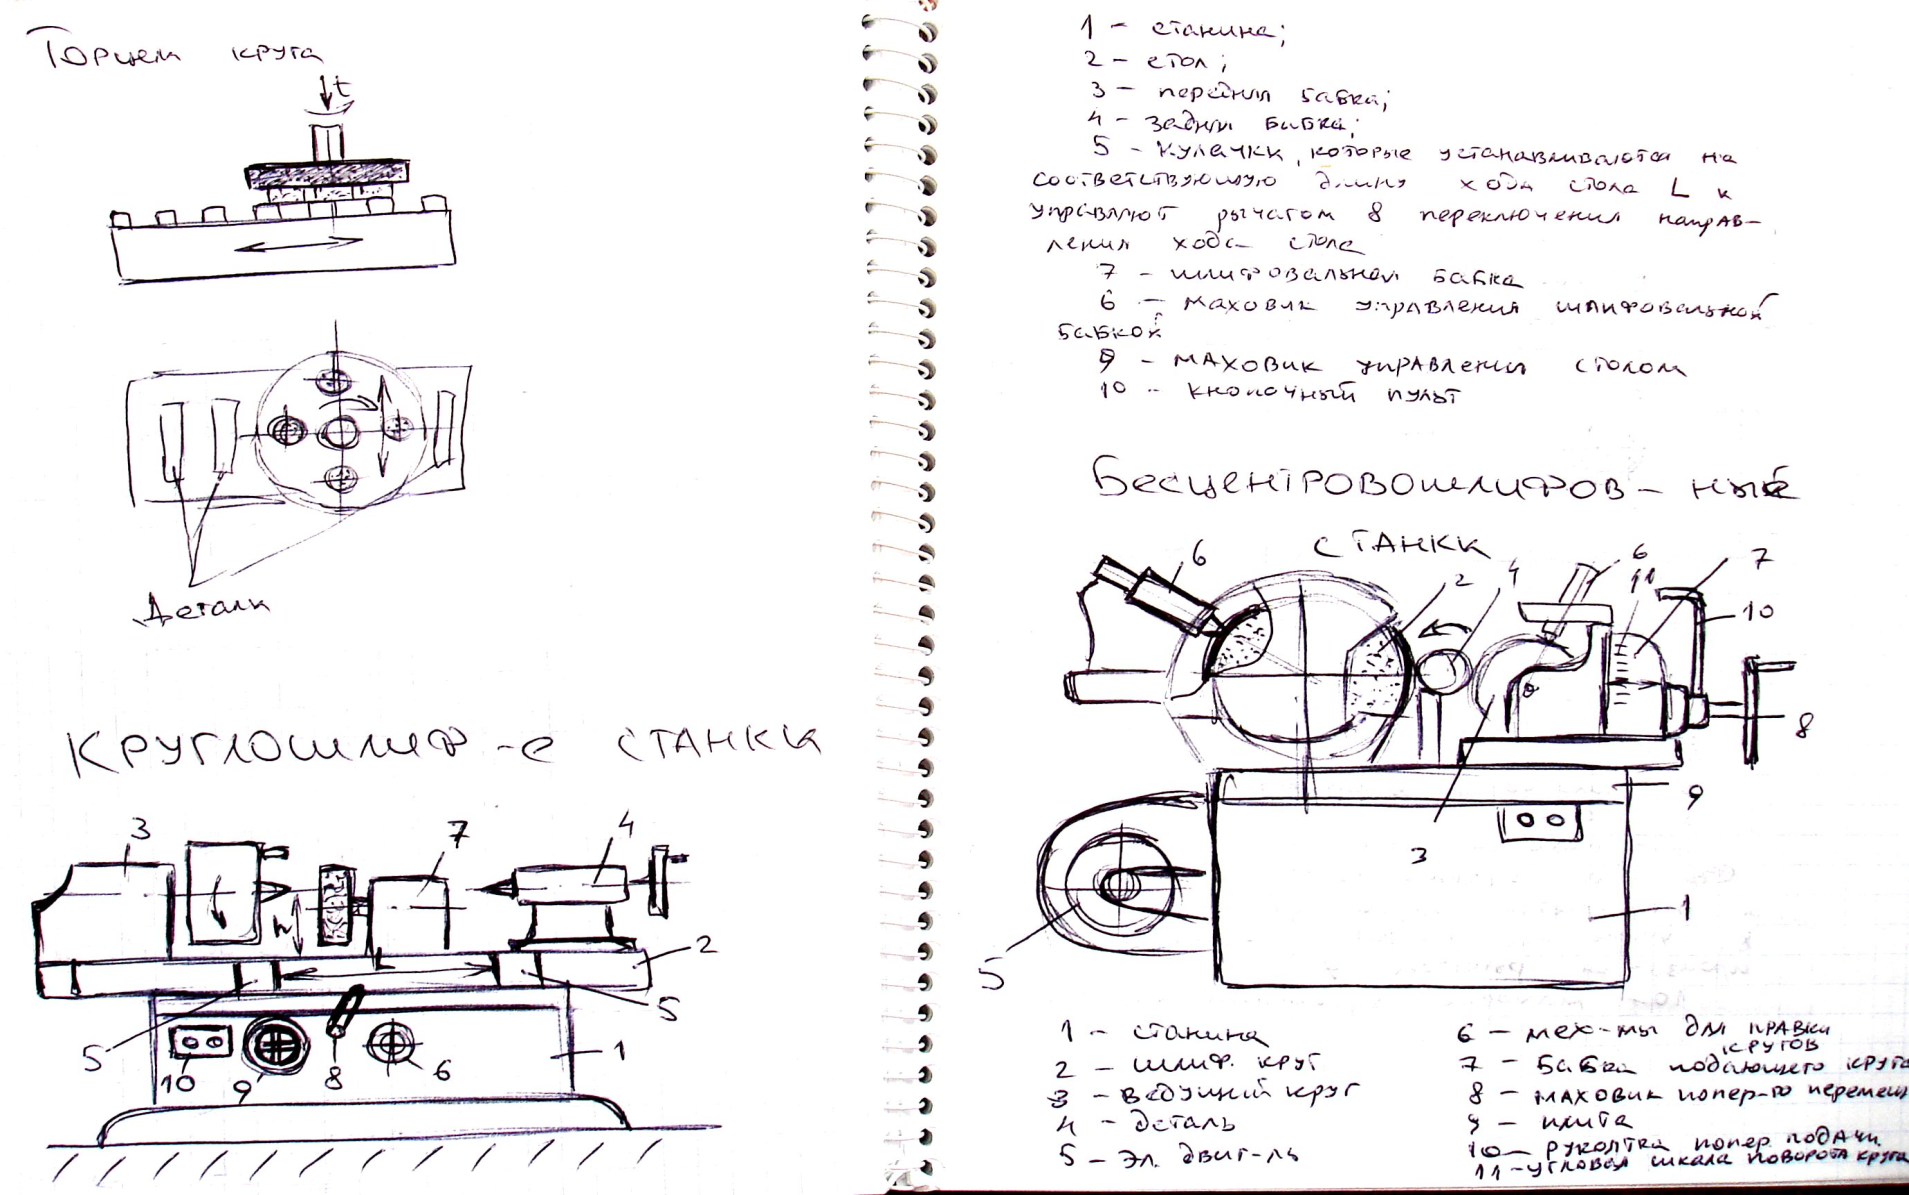 Торцем круга
t
Детали
Круглошлиф-е станки
3
7
4
h
L
2
5
5
10
9
8
6
1
1 - станина;
2 - стол;
3 - передняя бабка;
4 - задняя бабка;
5 - кулачки, которые устанавливаются на
соответствующую длину хода стола L и
управляют рычагом 8 переключения направ-
ления хода стола
7 - шлифовальная бабка
6 - маховик управления шлифовальной
бабкой
9 - маховик управления столом
10 - кнопочный пульт
Бесцентровошлифов-ные
станки
6
2
4
6
11
7
10
8
9
3
1
5
1 - станина
2 - шлиф. круг
3 - ведущий круг
4 - деталь
5 - эл. двиг-ль
6 - мех-мы для правки
кругов
7 - бабка подающего круга
8 - маховик попер-го перемещ
9 - плита
10 - рукоятка попер. подачи
11 - угловая шкала поворота круга